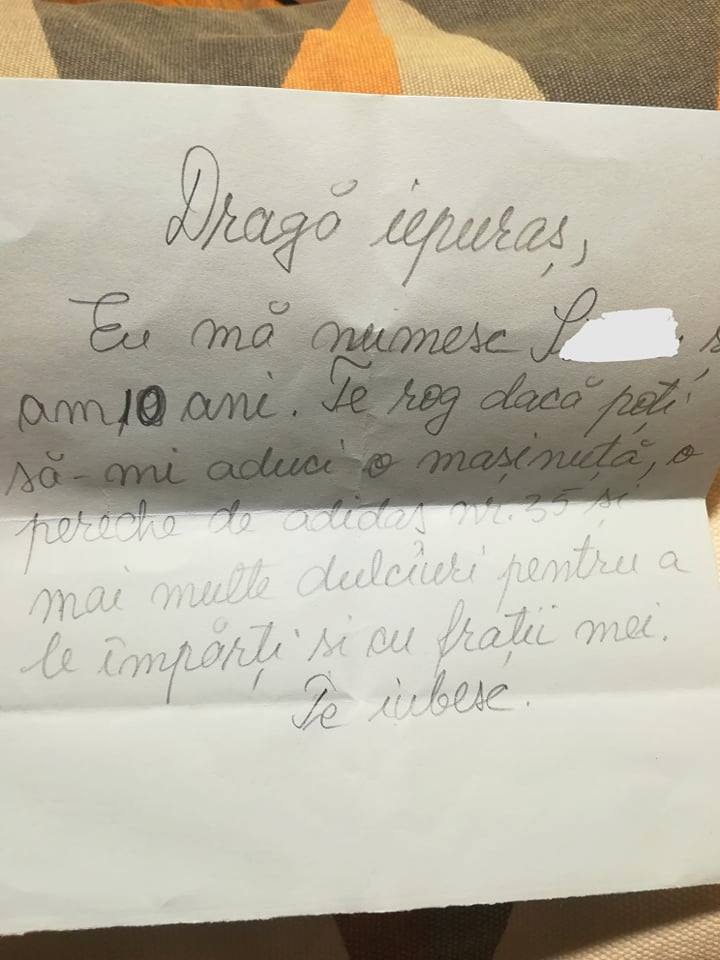 Dragă iepuraș,
Eu mă numesc
am 10 ani. Te rog dacă poți
să-mi aduci o mașinuță, o
pereche de adidas nr. 35 și
mai multe dulciuri pentru a
le împărți și cu frații mei.
Te iubesc.